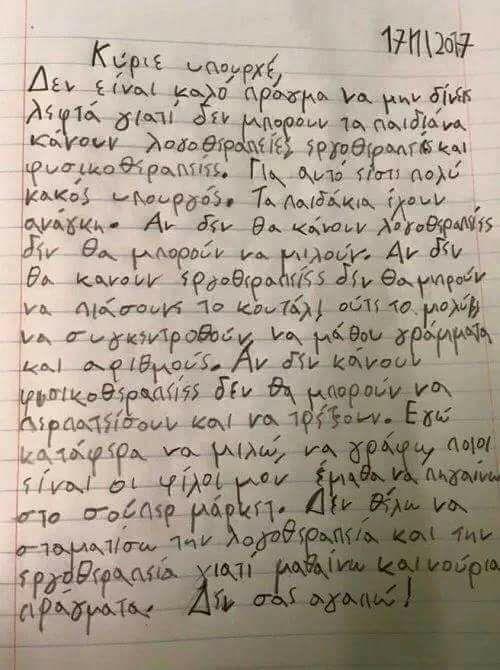 17/1/2017
Κύριε υπουρχέ,
Δεν είναι καλό πραγμα να μην δίνεις
λεφτά γιατί δεν μπορουν τα παιδιά να
κάνουν λογοθεραπείες, εργοθεραπείες και
φυσικοθεραπείες. Για αυτό είστι πολύ
κακός υπουργός. Τα παιδάκια έχουν
ανάγκη. Αν δεν θα κάνουν λογοθεραπείες
δεν θα μπορούν να μιλούν. Αν δεν
θα κανουν εργοθεραπείες δεν θα μπρούν
να πιάσουν το κουτάλι ούτε το μολύβι
να συγκεντροθούν, να μάθου γράμματα
και αριθμούς. Αν δεν κάνουν
φυσικοθεραπείες δεν θα μπορούν να
περπατείσουν και να τρέξουν. Εγώ
κατάφερα να μιλώ, να γράφω, ποιοι
είναι οι φίλοι μου έμαθα να πηγαίνω
στο σούπερ μάρκετ. Δεν θέλω να
σταματίσω την λογοθεραπεία και την
εργοθεραπεία γιατι μαθαίνω καινούρια
πράγματα. Δεν σας αγαπώ!